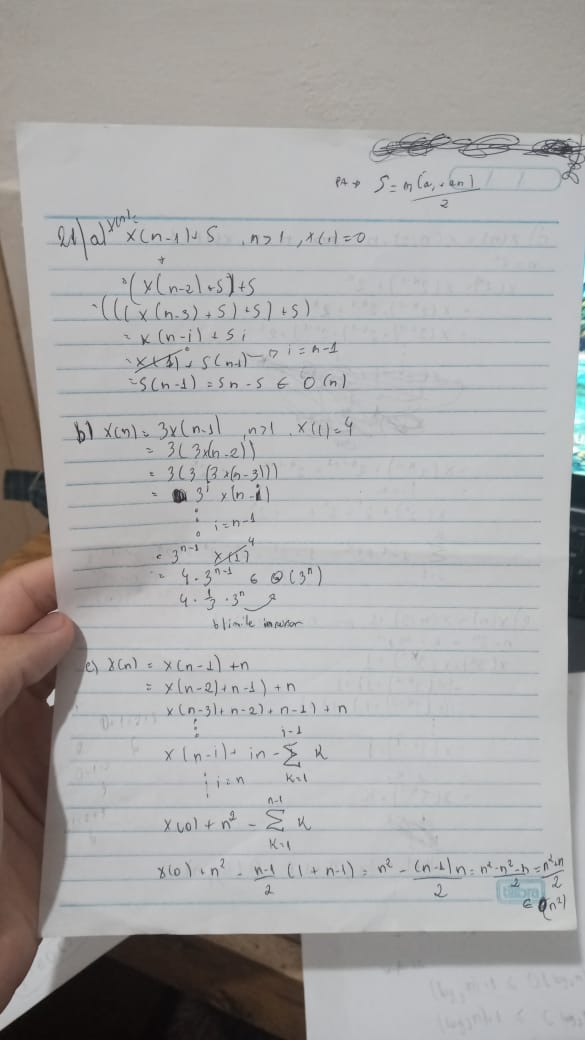 PA → S = n(a₁ + an)/2
21) a) x(n) = x(n-1) + 5 , n > 1 , x(1) = 0
= (x(n-2) + 5) + 5
= (((x(n-3) + 5) + 5) + 5)
= x(n-i) + 5i
= x(1) + 5(n-1) → i = n-1
= 5(n-1) = 5n - 5 ∈ Θ(n)
b) x(n) = 3x(n-1) , n>1 , x(1) = 4
= 3(3x(n-2))
= 3(3(3x(n-3)))
= 3^i x(n-i)
⋮ i = n-1
= 3^(n-1) x(1) 4
= 4 . 3^(n-1) ∈ Θ(3^n)
4 . 1/3 . 3^n
limite
c) x(n) = x(n-1) + n
= x(n-2) + n-1) + n
x(n-3) + n-2) + n-1) + n
⋮
x(n-i) + in - ∑ k i-1 k=1
⋮ i = n
x(0) + n² - ∑ k n-1 k=1
x(0) + n² - n-1/2 (1 + n-1) = n² - (n-1)n/2 = n² - n² - n/2 = n² + n/2
∈ Θ(n²)
tilibra